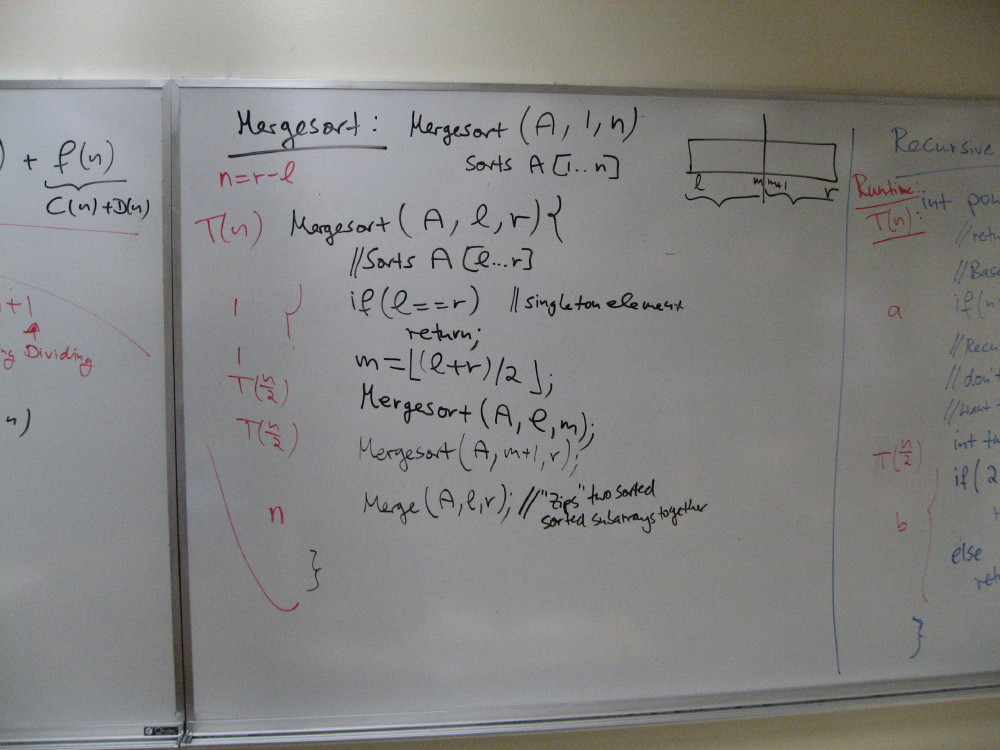 ) + f(n)
C(n)+D(n)
+1
Dividing
n)
Mergesort: Mergesort (A, 1, n)
Sorts A [1...n]
n=r-l
T(n) Mergesort (A, l, r) {
//Sorts A [l...r]
1 if (l==r) //singleton element
return;
1 m=⌊(l+r)/2⌋;
T(n/2) Mergesort (A, l, m);
T(n/2) Mergesort (A, m+1, r);
n Merge (A, l, r); //"Zips" two sorted
sorted subarrays together
}
l m m+1 r
Recursive
Runtime:
T(n): int pow
//retu
//Bas
a if(n
//Recu
//don't
//want
int
T(n/2) if(2
b
else
ret
}